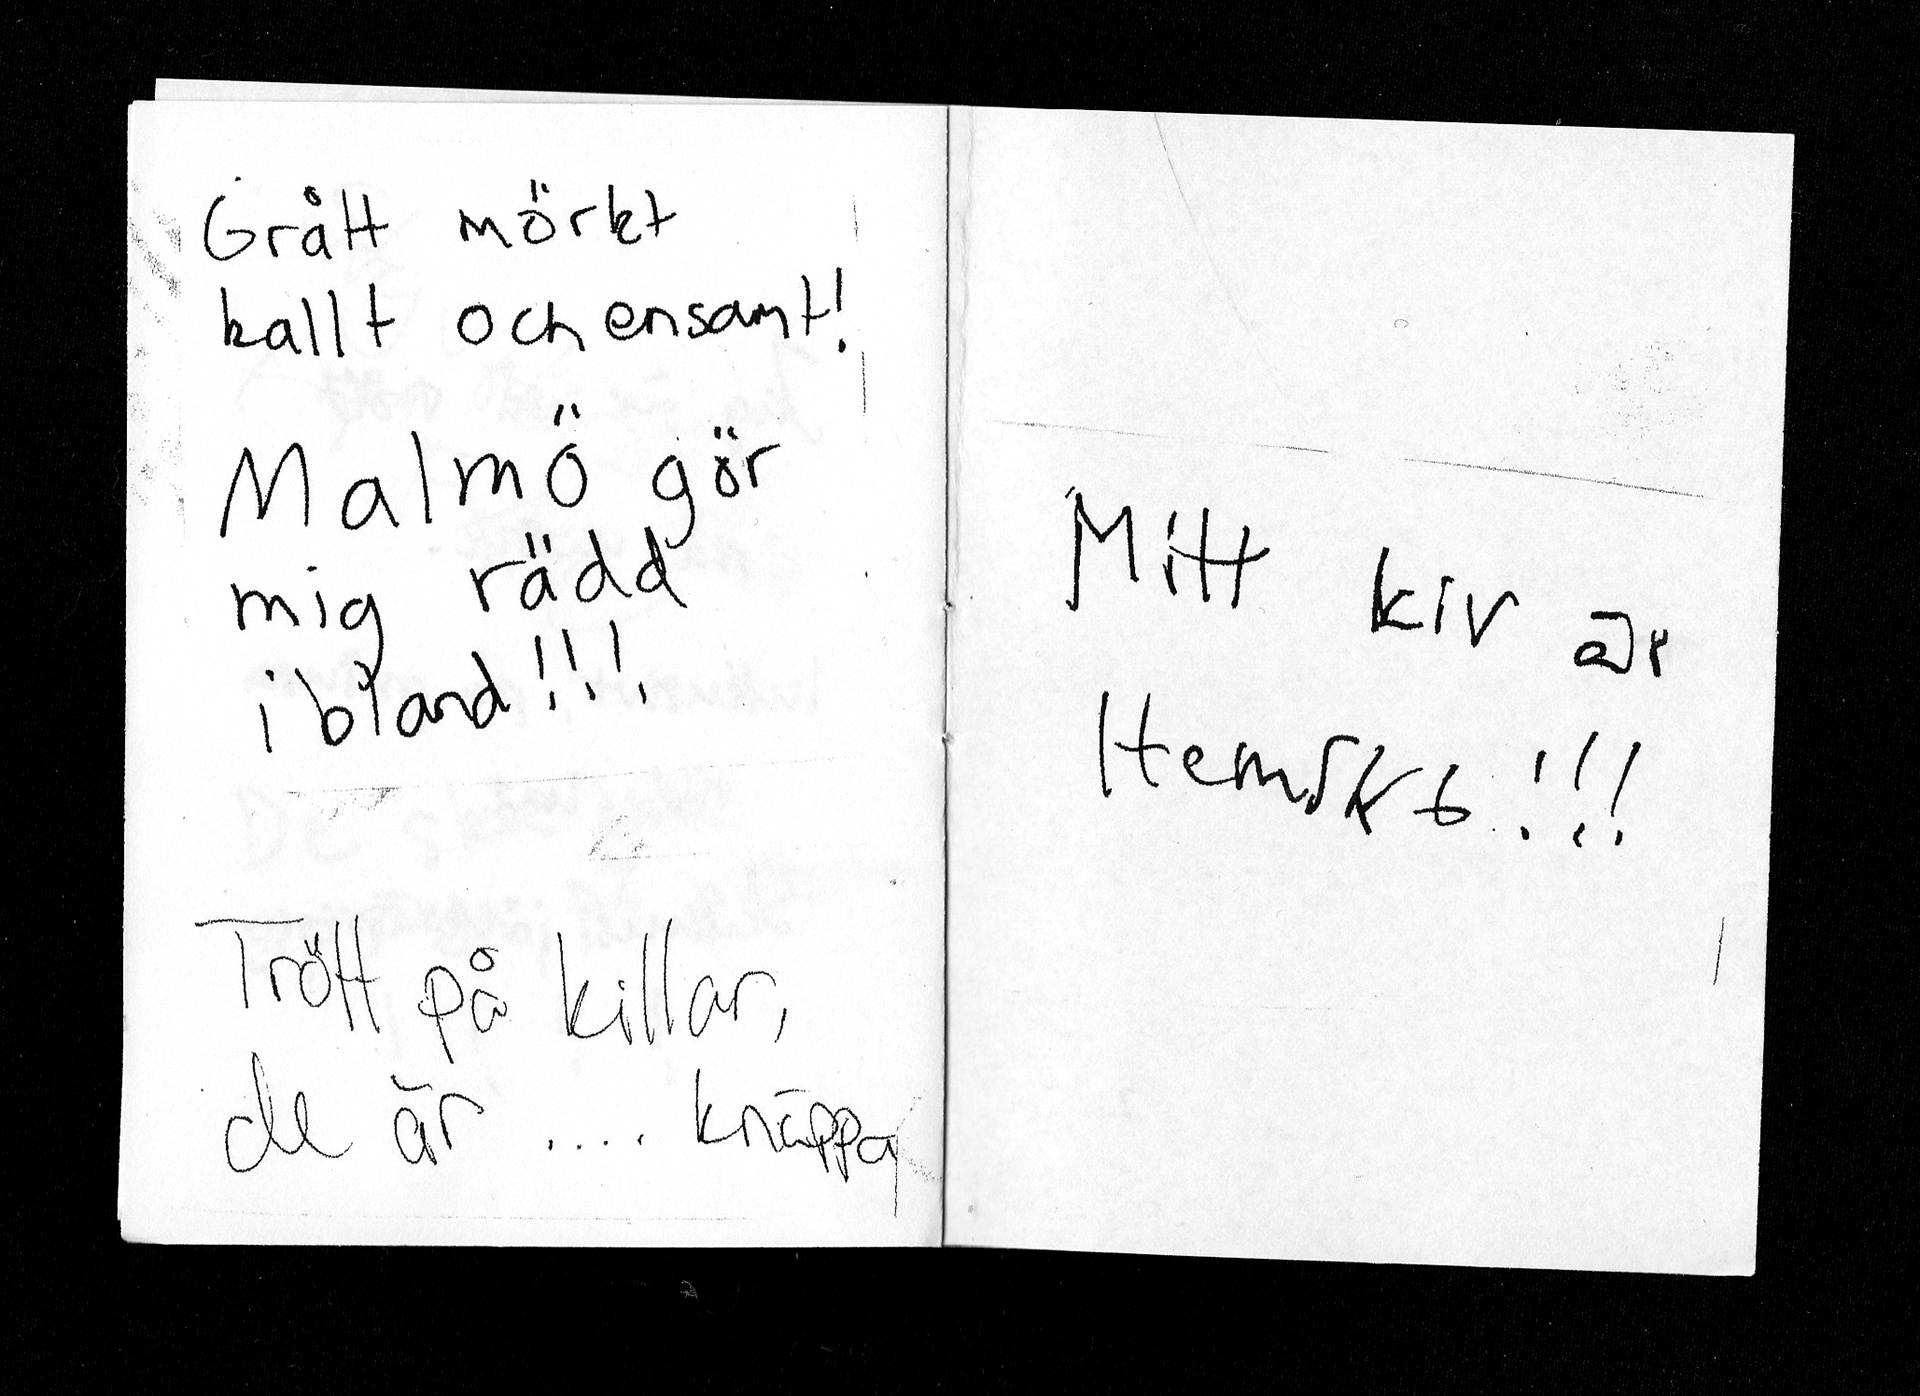 Grått mörkt
kallt och ensamt!
Malmö gör
mig rädd
ibland!!!
Trött på killar,
de är .... knäppa
Mitt kiv är
Hemskt!!!